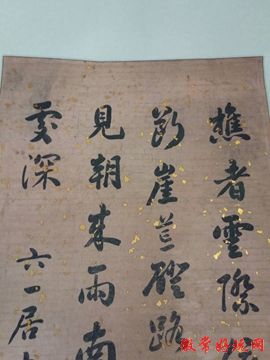 樵者雲際
斷崖荒磴路
見朝來雨南
處深
六一居